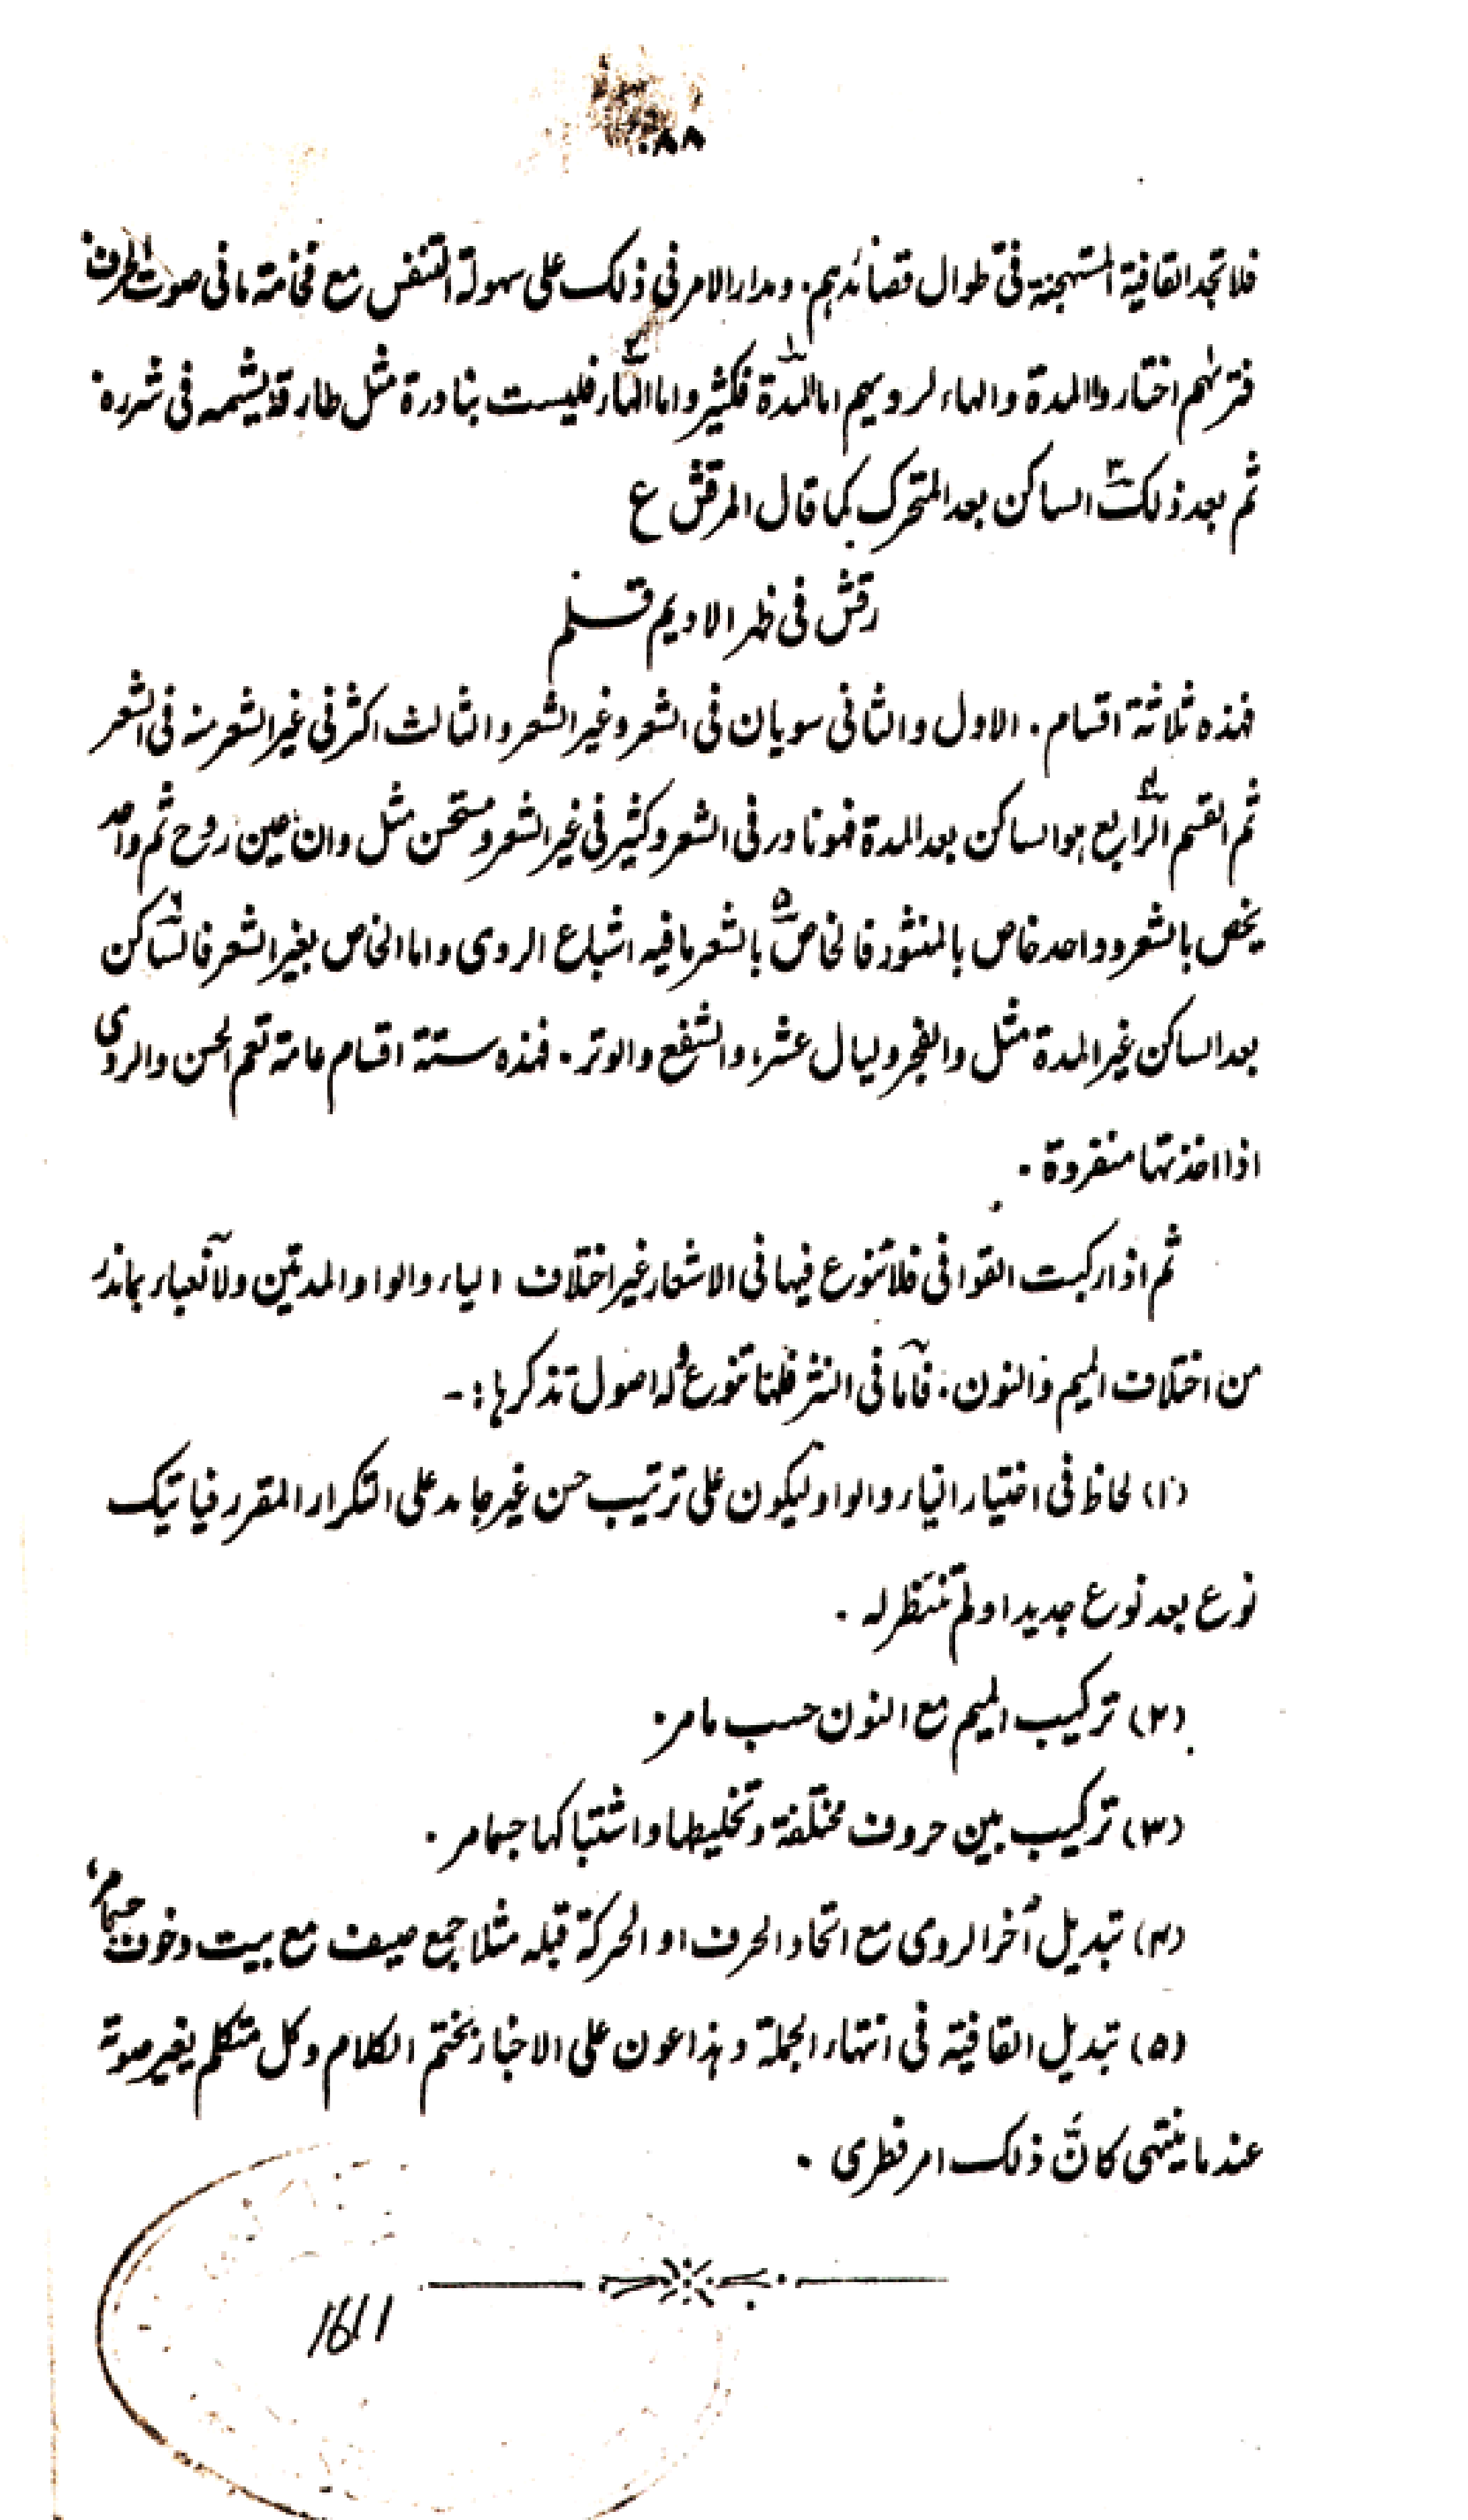 ٨٨
فلا تجد القافية المستهجنة فى طوال قصائدهم. ومدار الامر فى ذلك على سهولة التنفس مع فخامة ما فى صوت الحرف
فترٰهم اختاروا المدة والهاء لرويهم اما المدة١ فكثير واما الهاء٢ فليست بنادرة مثل طارقة يشيمه فى شرره
ثم بعد ذلك٣ الساكن بعد المتحرك كما قال المرقش ع
رقش فى ظهر الاديم قلم
فهذه ثلاثة اقسام. الاول والثانى سويان فى الشعر وغير الشعر والثالث اكثر فى غير الشعر منه فى الشعر
ثم القسم الرابع٤ هو الساكن بعد المدة فهو نادر فى الشعر وكثير فى غير الشعر ومستحسن مثل وان عين روح ثم واحد
يخص بالشعر وواحد خاص بالمنثور فالخاص٥ بالشعر ما فيه اشباع الروى واما الخاص بغير الشعر فالساكن٦
بعد الساكن غير المدة مثل والفجر وليال عشر، والشفع والوتر. فهذه ستة اقسام عامة تعم الحسن والردى
اذا اخذتها منفردة.
ثم اذا ركبت القوافى فلا تنوع فيها فى الاشعار غير اختلاف الياء والواو المدتين ولا نعباء بما ندر
من اختلاف الميم والنون. فاما فى النثر فلها تنوع وله اصول نذكرها:-
(١) لحاظ فى اختيار الياء والواو ليكون على ترتيب حسن غير جامد على التكرار المقرر فياتيك
نوع بعد نوع جديدا ولم تنتظر له.
(٢) تركيب الميم مع النون حسب ما مر.
(٣) تركيب بين حروف مختلفة وتخليطها واشتباكها حسبما مر.
(٤) تبديل اٰخر الروى مع اتحاد الحرف او الحركة قبله مثلا جمع صيف مع بيت وخوف حسبما مر،
(٥) تبديل القافية فى انتهاء الجملة وهذا عون على الاخبار بختم الكلام وكل متكلم يغير صوته
عند ما ينتهى كانّ ذلك امر فطرى.
1611